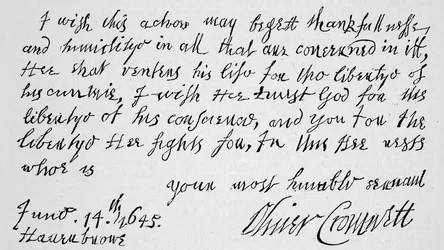 I wish this action may begett thankfullnesse
and humilitye in all that are concerned in itt,
Hee that venters his life for the libertye of
his cuntrie, I wish Hee trust God for the
libertye of his conscience, and you for the
libertye Hee fights for, In this Hee rests
whoe is
your most humble servant
Oliver Cromwell
June. 14.th 1645.
Haverbrowe